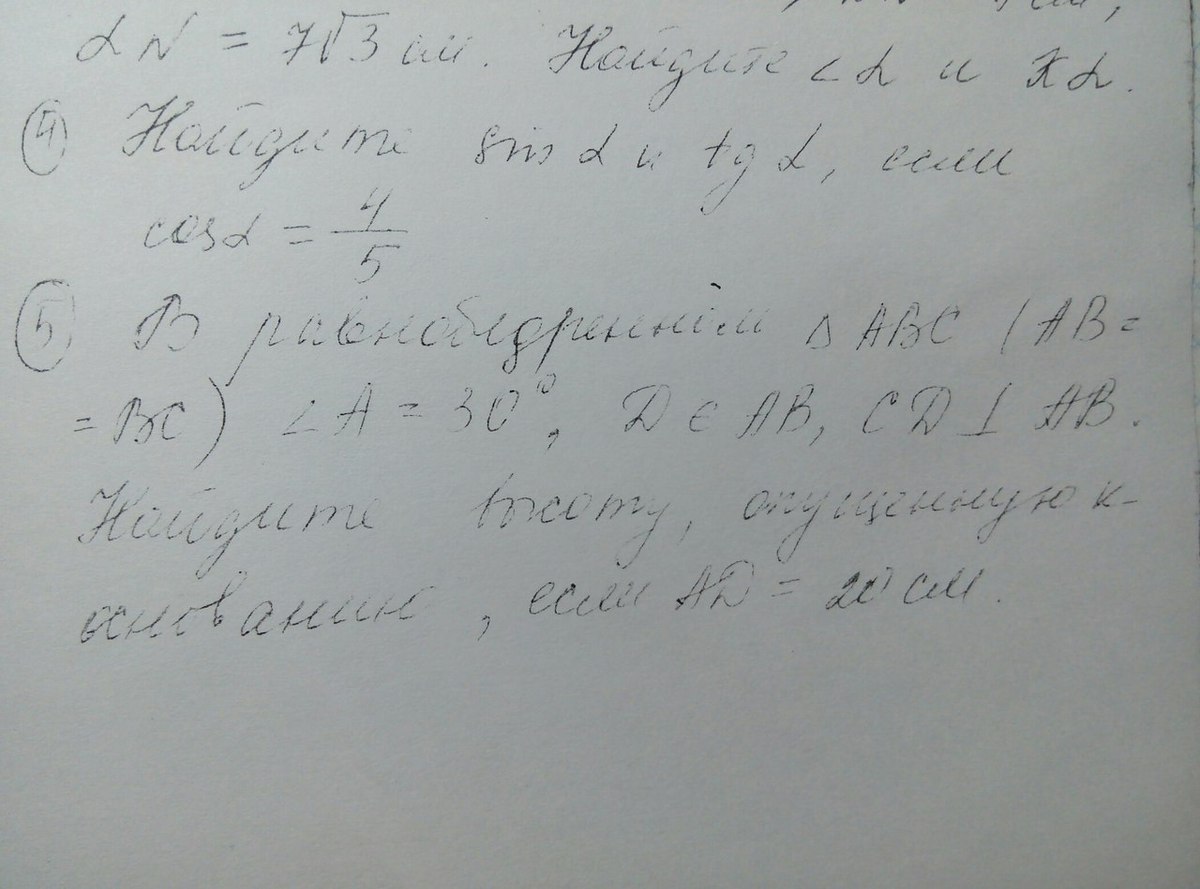 LN = 7√3 см. Найдите ∠L и KL.
④ Найдите sin α и tg α, если
cos α = 4/5
⑤ В равнобедренном △ ABC (AB =
= BC) ∠A = 30°, D ∈ AB, CD ⊥ AB.
Найдите высоту, опущенную к-
основанию, если AD = 20 см.